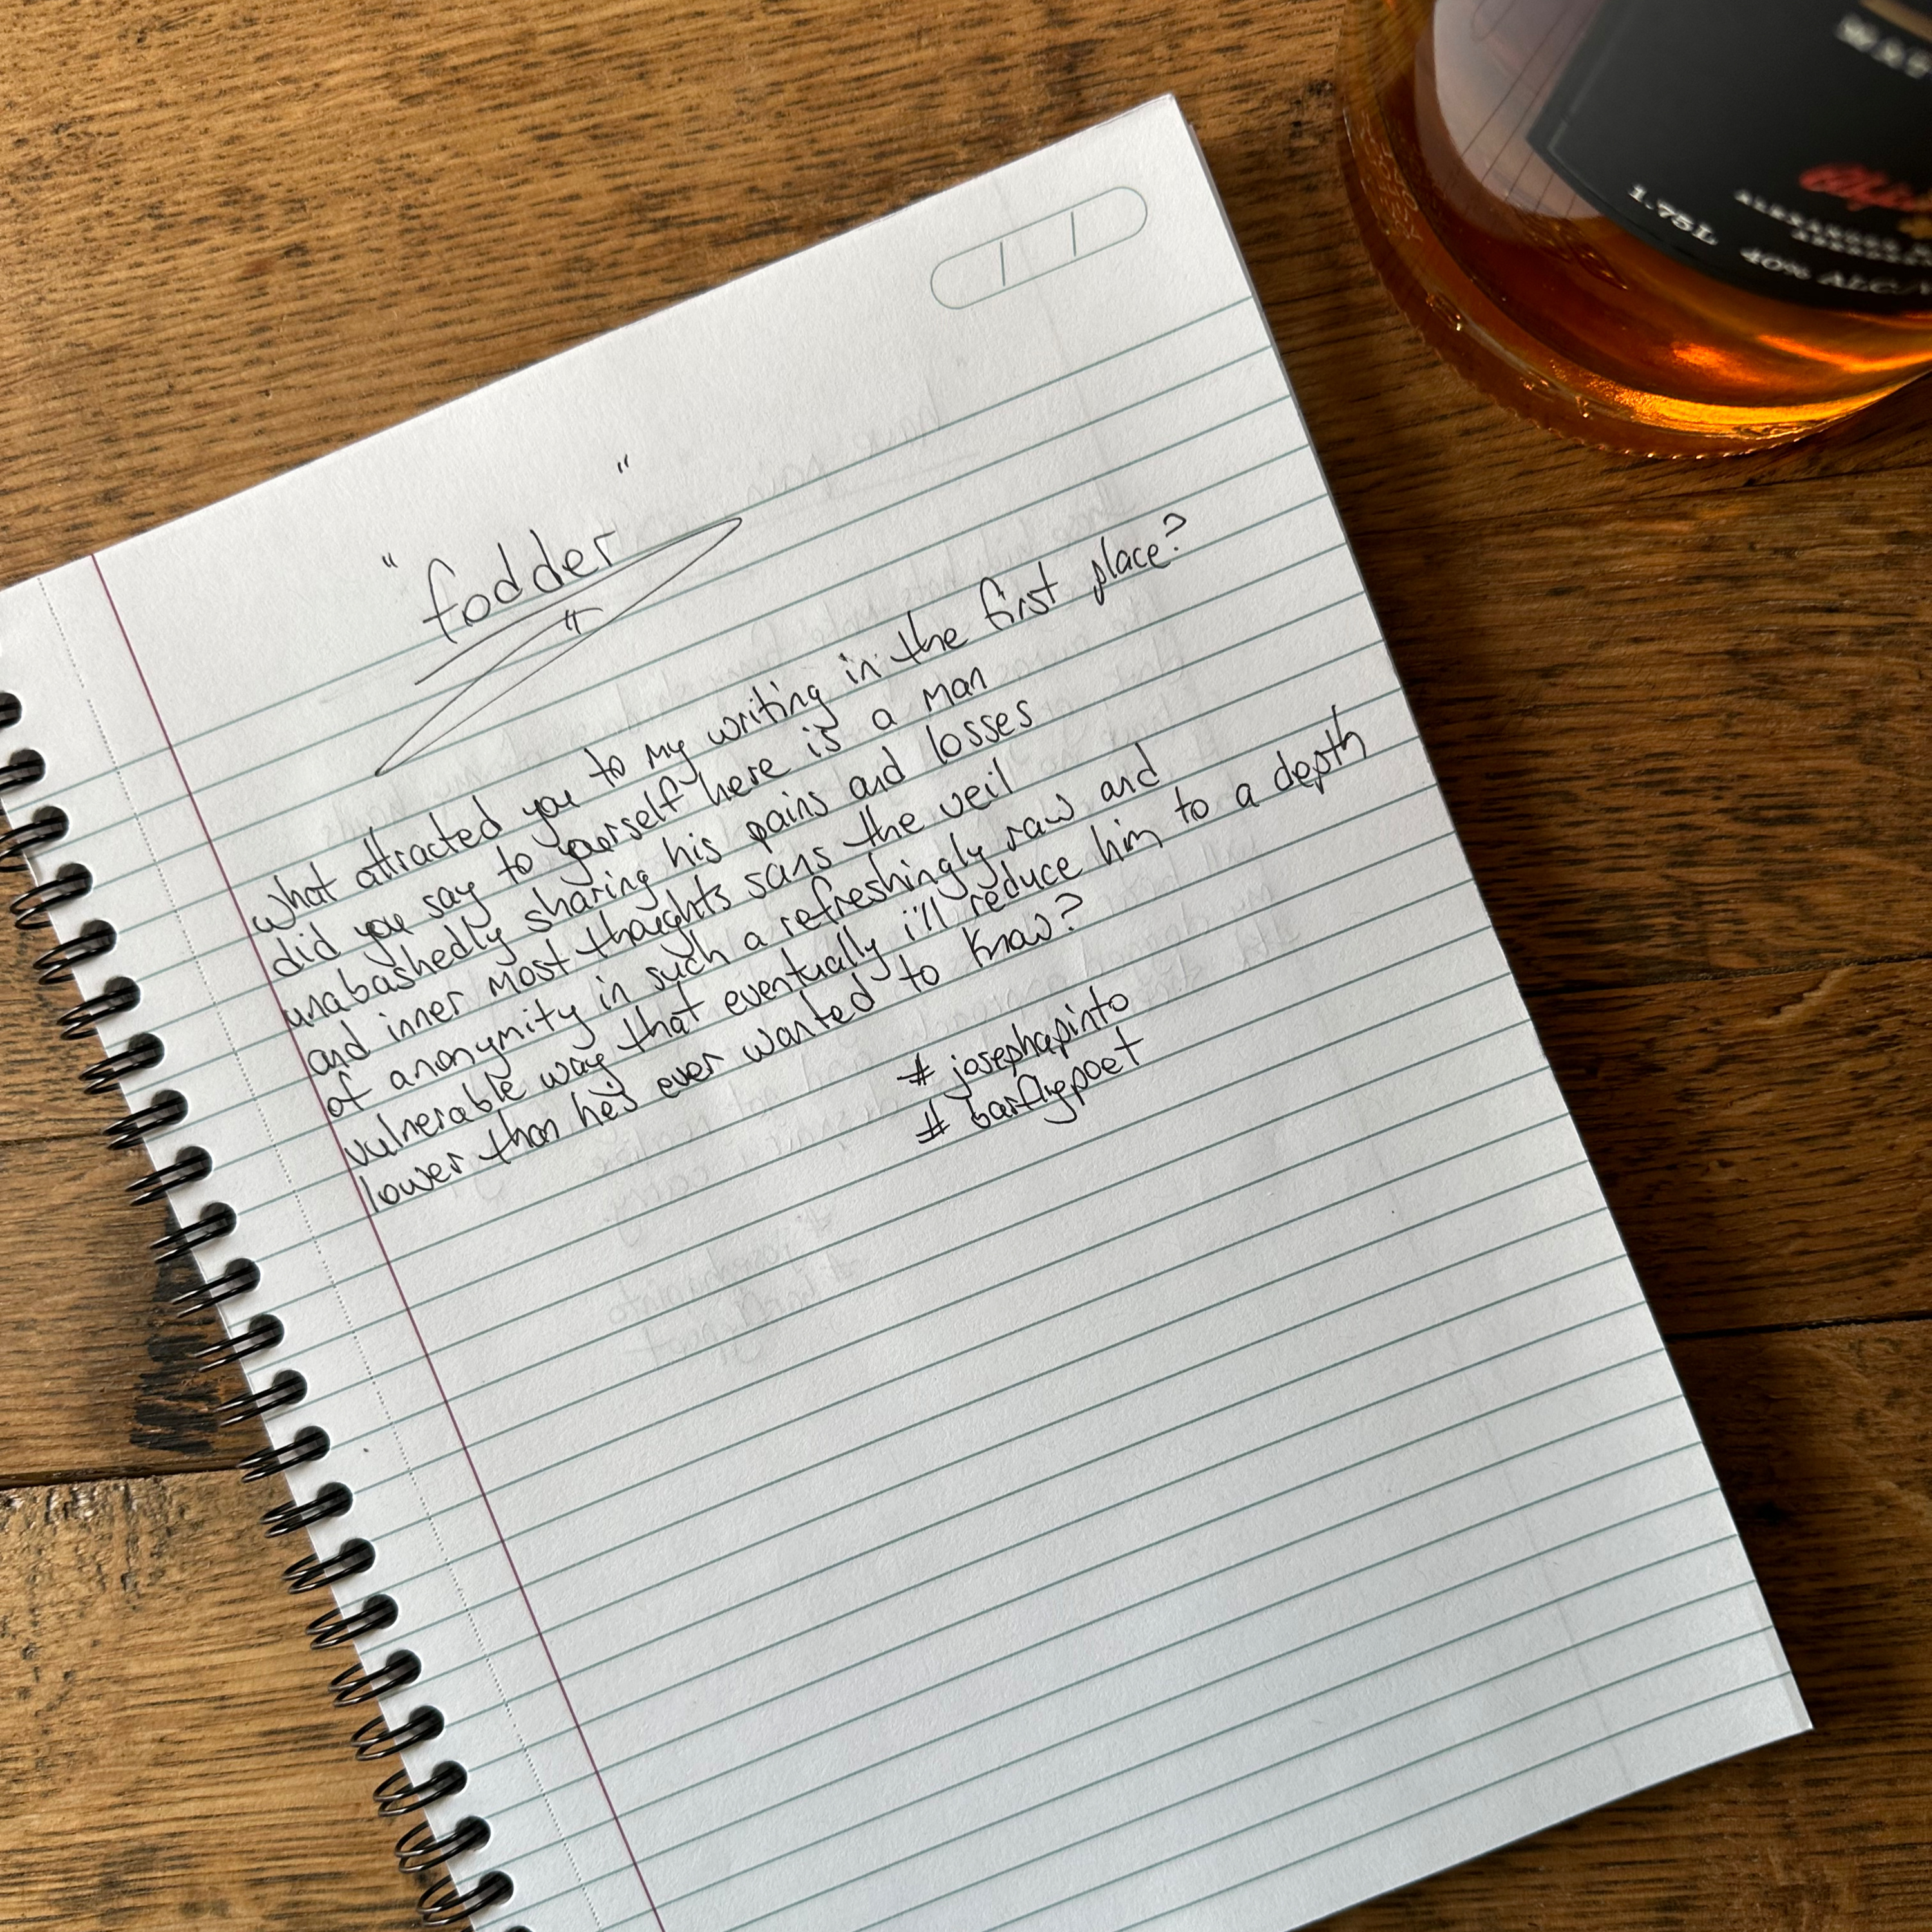 "fodder"
what attracted you to my writing in the first place?
did you say to yourself here is a man
unabashedly sharing his pains and losses
and inner most thoughts sans the veil
of anonymity in such a refreshingly raw and
vulnerable way that eventually i'll reduce him to a depth
lower than he's ever wanted to know?
# josephapinto
# barflypoet
1.75L 40% ALC/